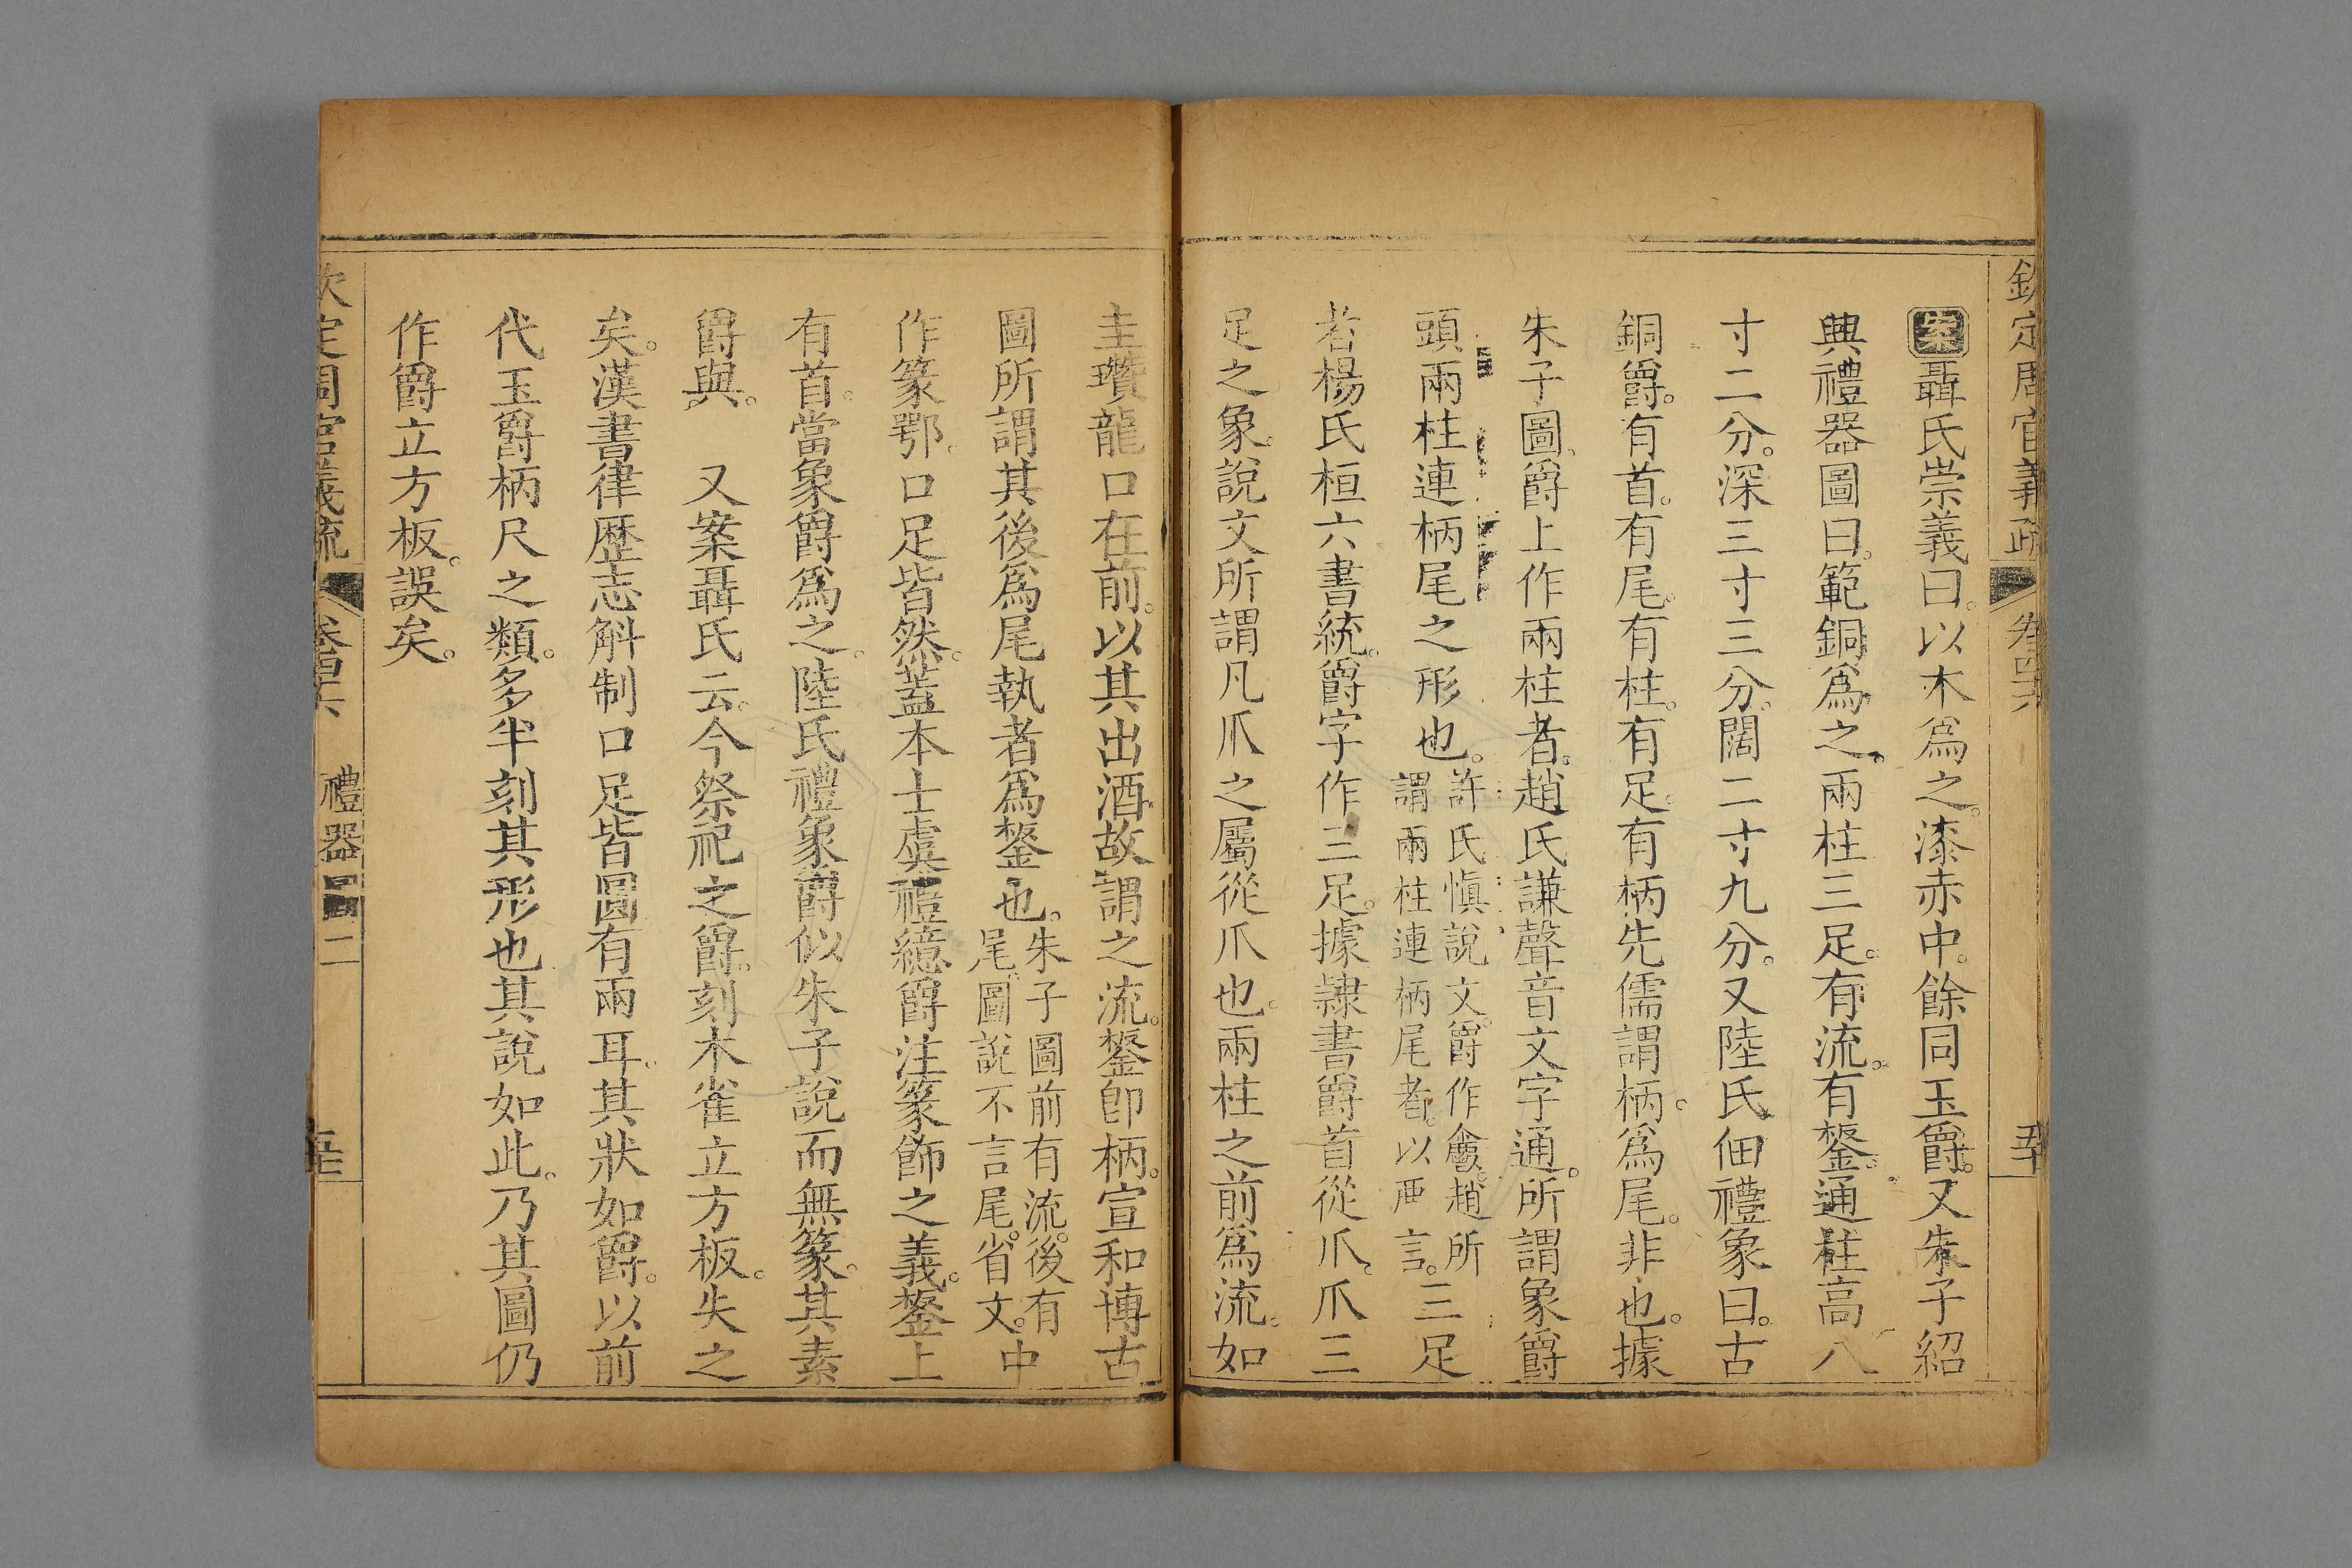 欽定周官義疏 卷四六 五十
案聶氏崇義曰。以木爲之。漆赤中。餘同玉爵。又朱子紹
典禮器圖曰。範銅爲之。兩柱三足。有流。有鋬。通柱高八
寸二分。深三寸三分。闊二寸九分。又陸氏佃禮象曰。古
銅爵。有首。有尾。有柱。有足。有柄。先儒謂柄爲尾。非也。據
朱子圖。爵上作兩柱者。趙氏謙聲音文字通。所謂象爵
頭兩柱連柄尾之形也。許氏愼說文。爵作𤔲。趙所
謂兩柱連柄尾者。以

言。三足
者。楊氏桓六書統。爵字作三足。據隷書爵首從爪。爪三
足之象。說文所謂凡爪之屬從爪也。兩柱之前爲流。如
圭瓚龍口在前。以其出酒。故謂之流。鋬卽柄。宣和博古
圖所謂其後爲尾執者爲鋬也。朱子圖前有流。後有
尾。圖說不言尾。省文。中
作篆鄂。口足皆然。蓋本士虞禮繶爵注篆飾之義。鋬上
有首。當象爵爲之。陸氏禮象爵似朱子說而無篆。其素
爵與。 又案聶氏云。今祭祀之爵。刻木雀立方板。失之
矣。漢書律歷志斛制口足皆圜有兩耳。其狀如爵。以前
代玉爵柄尺之類。多半刻其形也其說如此。乃其圖仍
作爵立方板。誤矣。
欽定周官義疏 卷四六 禮器圖二